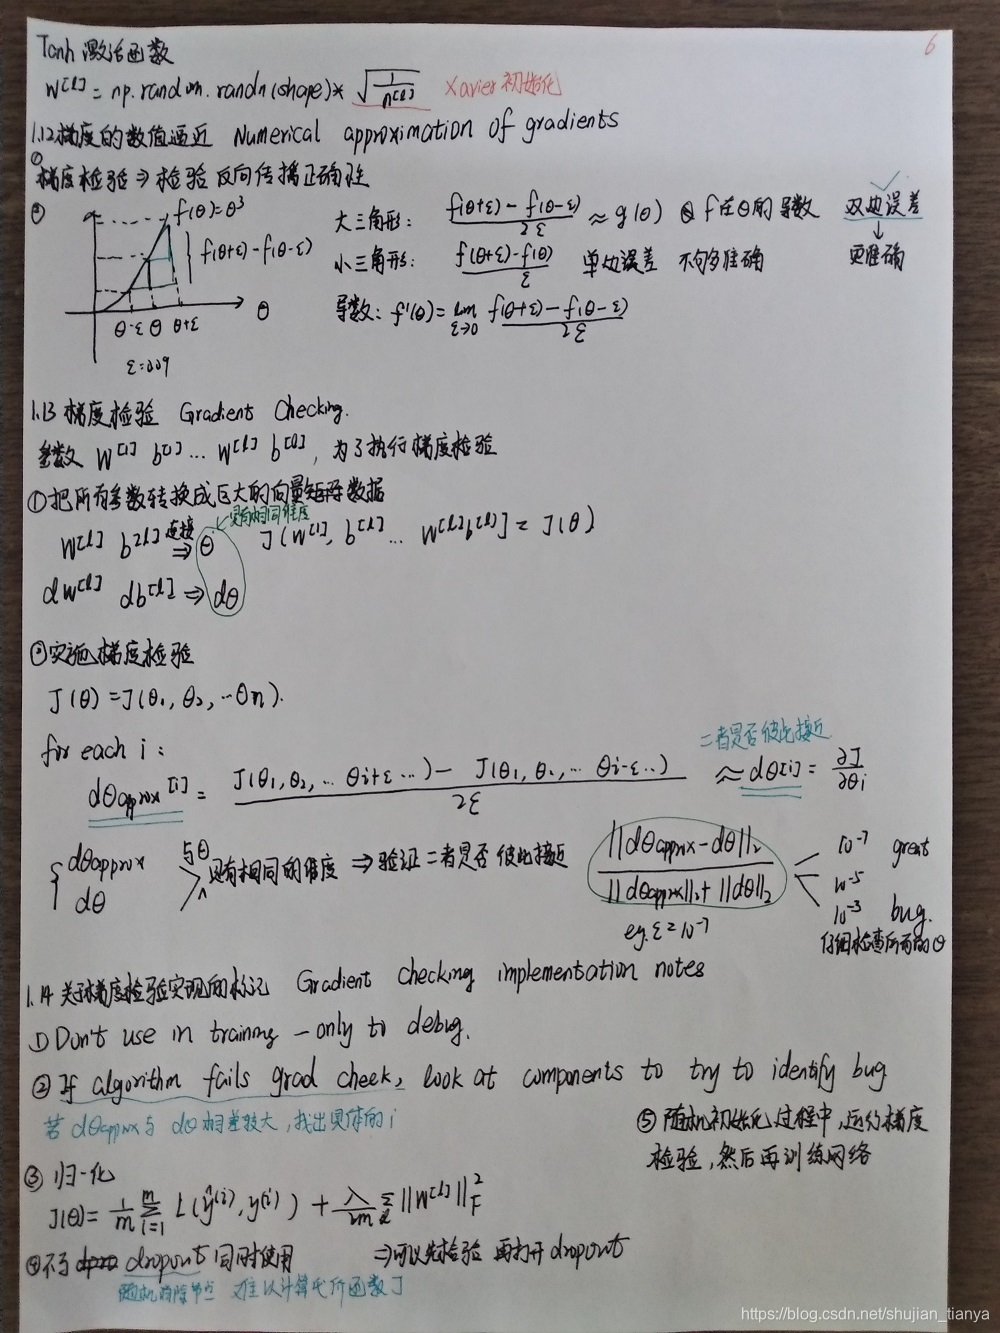 6
Tanh 激活函数
W[l] = np.random.randn(shape)* √(1/n[l]) Xavier初始化
1.12 梯度的数值逼近 Numerical approximation of gradients
① 梯度检验 ⇒ 检验反向传播正确性
② f(θ)=θ³
f(θ+ε)-f(θ-ε)
θ-ε θ θ+ε θ
ε=0.09
大三角形: (f(θ+ε) - f(θ-ε))/2ε ≈ g(θ) f在θ的导数 双边误差 ✓
↓
更准确
小三角形: (f(θ+ε)-f(θ))/ε 单边误差 不够准确
导数: f'(θ)= lim ε→0 (f(θ+ε)-f(θ-ε))/2ε
1.13 梯度检验 Gradient Checking.
参数 W[1] b[1] ... W[l] b[l], 为了执行梯度检验
① 把所有参数转换成巨大的向量矩阵数据
具有相同维度
W[l] b[l] 连接 ⇒ θ J(W[1], b[1] ... W[l] b[l]) = J(θ)
dW[l] db[l] ⇒ dθ
② 实施梯度检验
J(θ) = J(θ₁, θ₂, ...θn).
for each i: 二者是否彼此接近
dθapprox[i] = (J(θ₁, θ₂, ... θi+ε ...) - J(θ₁, θ₂, ... θi-ε ..))/2ε ≈ dθ[i] = ∂J/∂θi
{ dθapprox
dθ
与θ具有相同的维度 ⇒ 验证二者是否彼此接近 ||dθapprox-dθ||₂/(||dθapprox||₂+||dθ||₂)
10⁻⁷ great
10⁻⁵
10⁻³ bug.
仔细检查所有的θ
eg. ε=10⁻⁷
1.14 关于梯度检验实现的标记 Gradient Checking implementation notes
① Don't use in training - only to debug.
② If algorithm fails grad check, look at components to try to identify bug
若 dθapprox 与 dθ 相差较大, 找出具体的 i
③ 归一化
J(θ) = 1/m Σ i=1 m L(ŷ(i), y(i)) + λ/2m Σ l ||W[l]||²F
④ 不与 dropout 同时使用 ⇒ 可以先检验 再打开 dropout
随机消除节点 难以计算代价函数 J
⑤ 随机初始化过程中, 运行梯度
检验, 然后再训练网络
https://blog.csdn.net/shujian_tianya